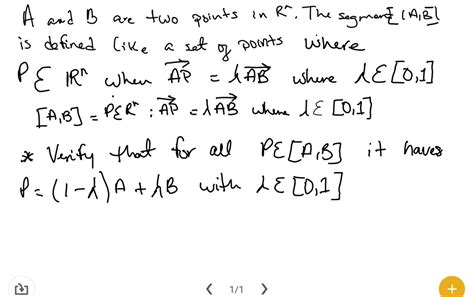 A and B are two points in Rⁿ. The segment [A,B]
is defined like a set of points where
P ∈ ℝⁿ when →AP = λ→AB where λ ∈ [0,1]
[A,B] = P∈ℝⁿ : →AP = λ→AB where λ ∈ [0,1]
* Verify that for all P∈[A,B] it haves
P = (1-λ)A + λB with λ∈[0,1]
1/1